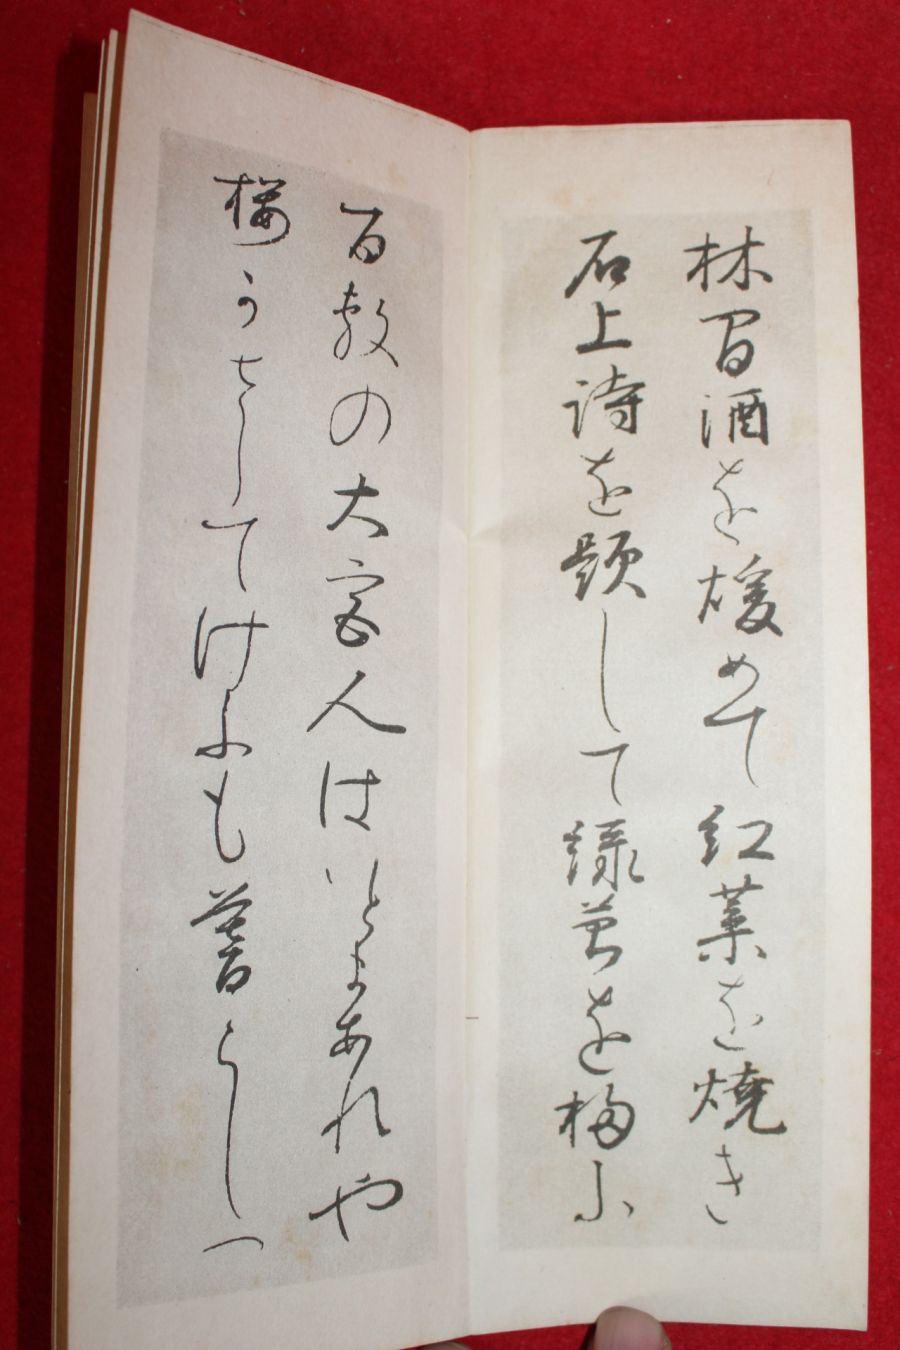 林間酒を煖めて紅葉を焼き
石上詩を題して緑苔を掃ふ
百敷の大宮人はいとまあれや
桜かさしてけふも暮らしつ